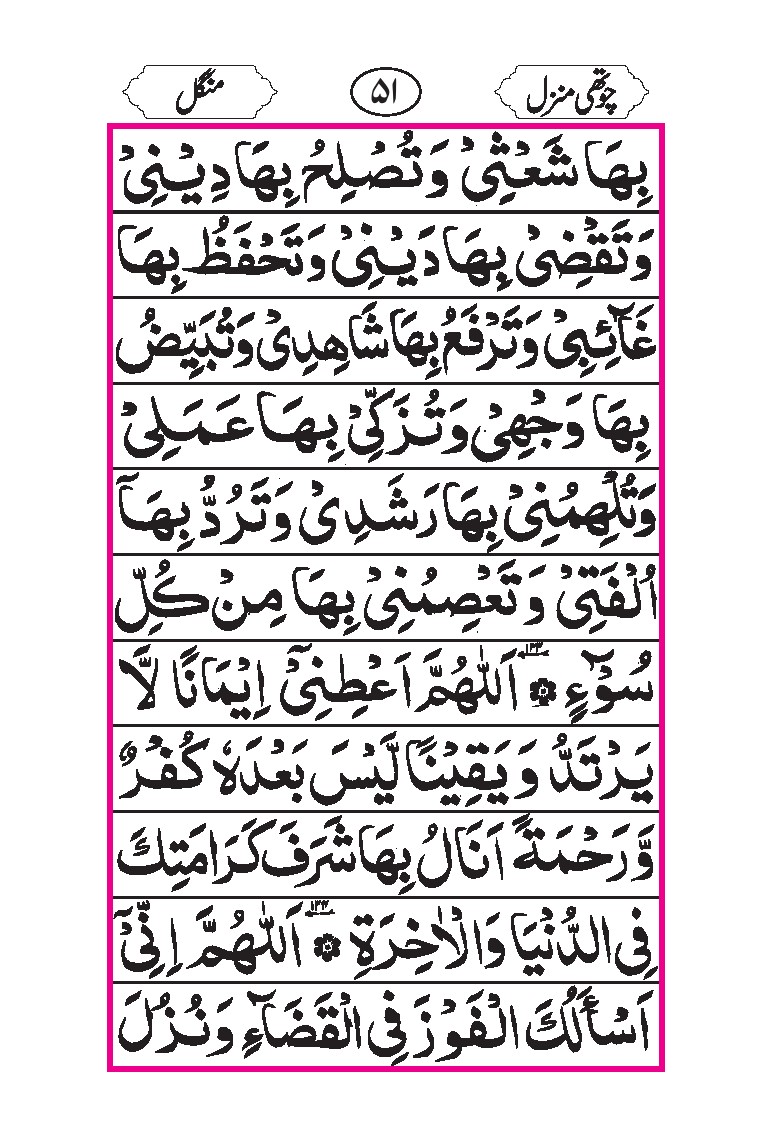 چوتھی منزل ۵۱ منگل
بِهَا شَعْثِیْ وَتُصْلِحُ بِهَا دِیْنِیْ
وَتَقْضِیْ بِهَا دَیْنِیْ وَتَحْفَظُ بِهَا
غَآئِبِیْ وَتَرْفَعُ بِهَا شَاهِدِیْ وَتُبَیِّضُ
بِهَا وَجْهِیْ وَتُزَكِّیْ بِهَا عَمَلِیْ
وَتُلْهِمُنِیْ بِهَا رَشَدِیْ وَتَرُدُّ بِهَآ
اُلْفَتِیْ وَتَعْصِمُنِیْ بِهَا مِنْ كُلِّ
سُوْٓءٍ ۞ اَللّٰهُمَّ اَعْطِنِیْٓ اِیْمَانًا لَّا
یَرْتَدُّ وَیَقِیْنًا لَّیْسَ بَعْدَهٗ كُفْرٌ
وَّرَحْمَةً اَنَالُ بِهَا شَرَفَ كَرَامَتِكَ
فِی الدُّنْیَا وَالْاٰخِرَةِ ۞ اَللّٰهُمَّ اِنِّیْٓ
اَسْأَلُكَ الْفَوْزَ فِی الْقَضَآءِ وَنُزُلَ